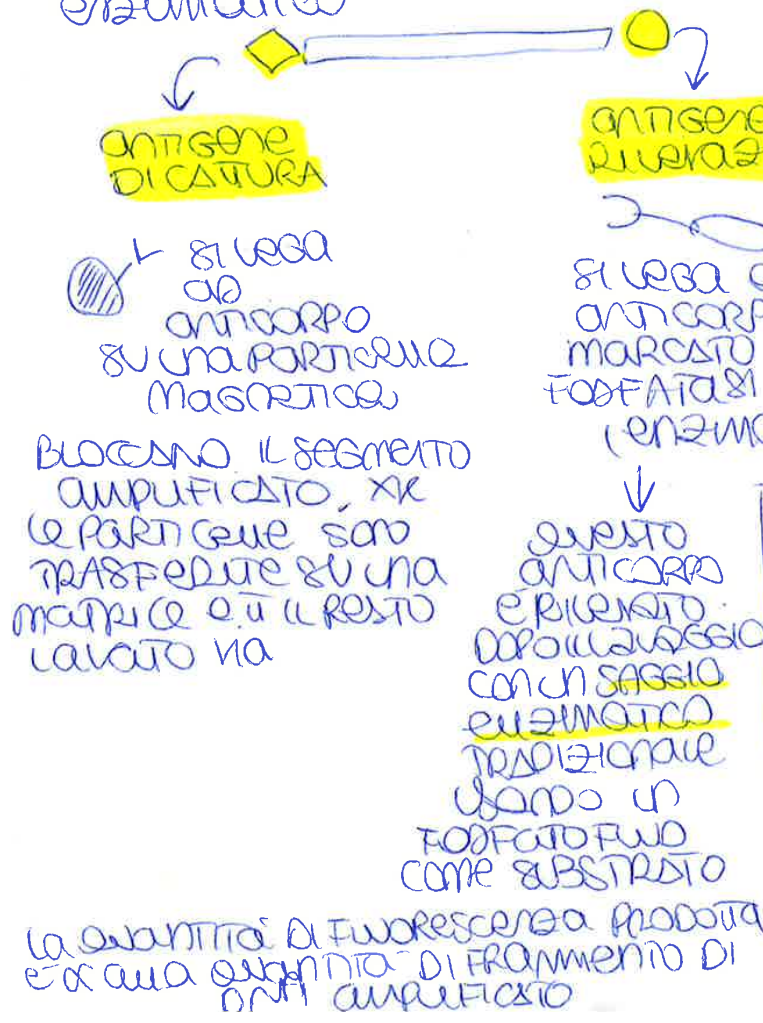 enzimatico
antigene
DI CATTURA
si lega
ad
anticorpo
su una particella
magnetica
BLOCCANO IL segmento
amplificato, xk
le particelle sono
trasferite su una
matrice e il resto
lavato via
antigene
si lega
antiCORP
marcato
FOSFATASI
(enzim
questo
anticorpo
è rilevato
DOPO il lavaggio
con un SAGGIO
enzimatico
tradizionale
usando un
FOSFATO FLUO
come substrato
la quantità di fluorescenza prodotta
è α alla quantità di frammento di
DNA amplificato